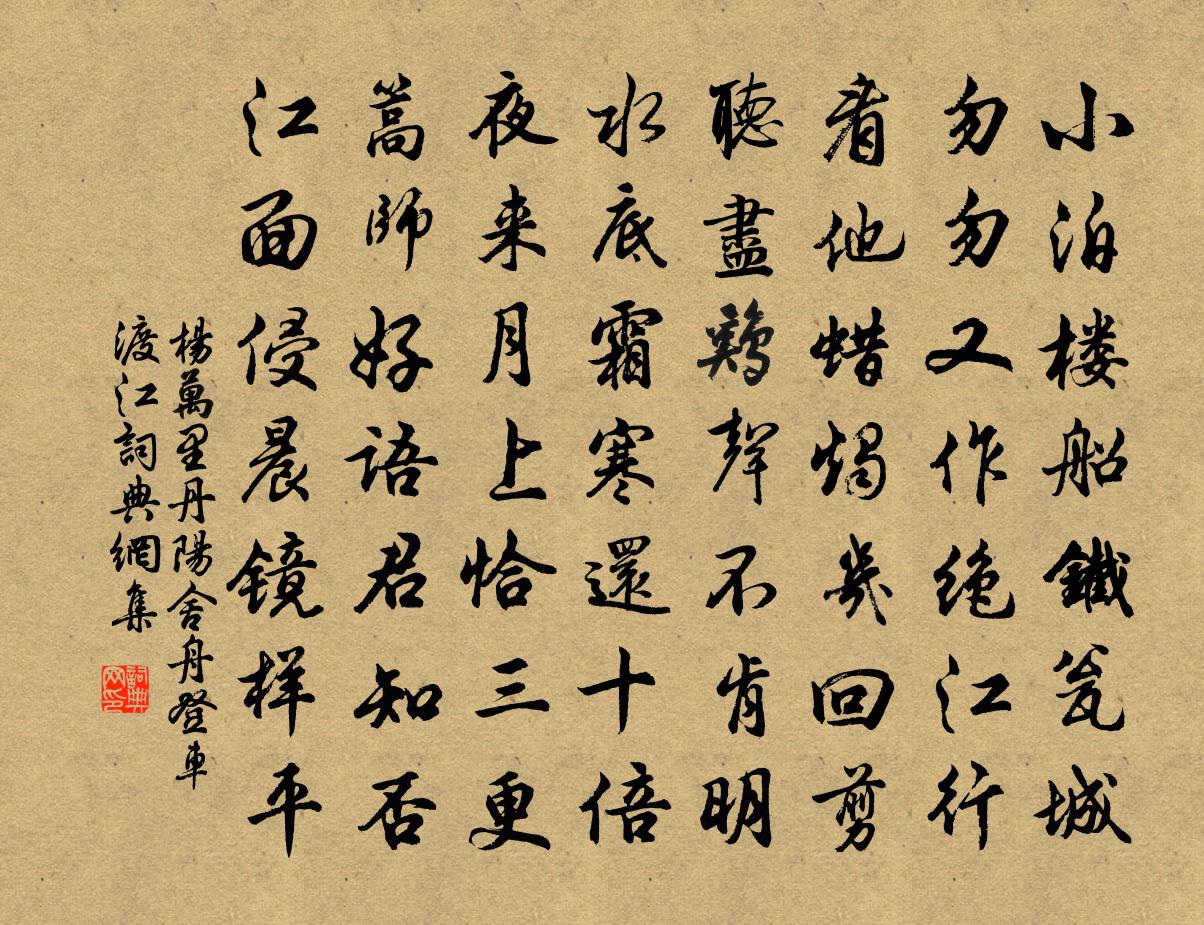 小泊楼船鐵瓮城
勿勿又作绝江行
看他蜡燭幾回剪
聽盡鷄聲不肯明
水底霜寒還十倍
夜来月上恰三更
篙師好語君知否
江面侵晨镜样平
楊萬里丹陽舍舟登車
渡江詞典網集
詞典网印